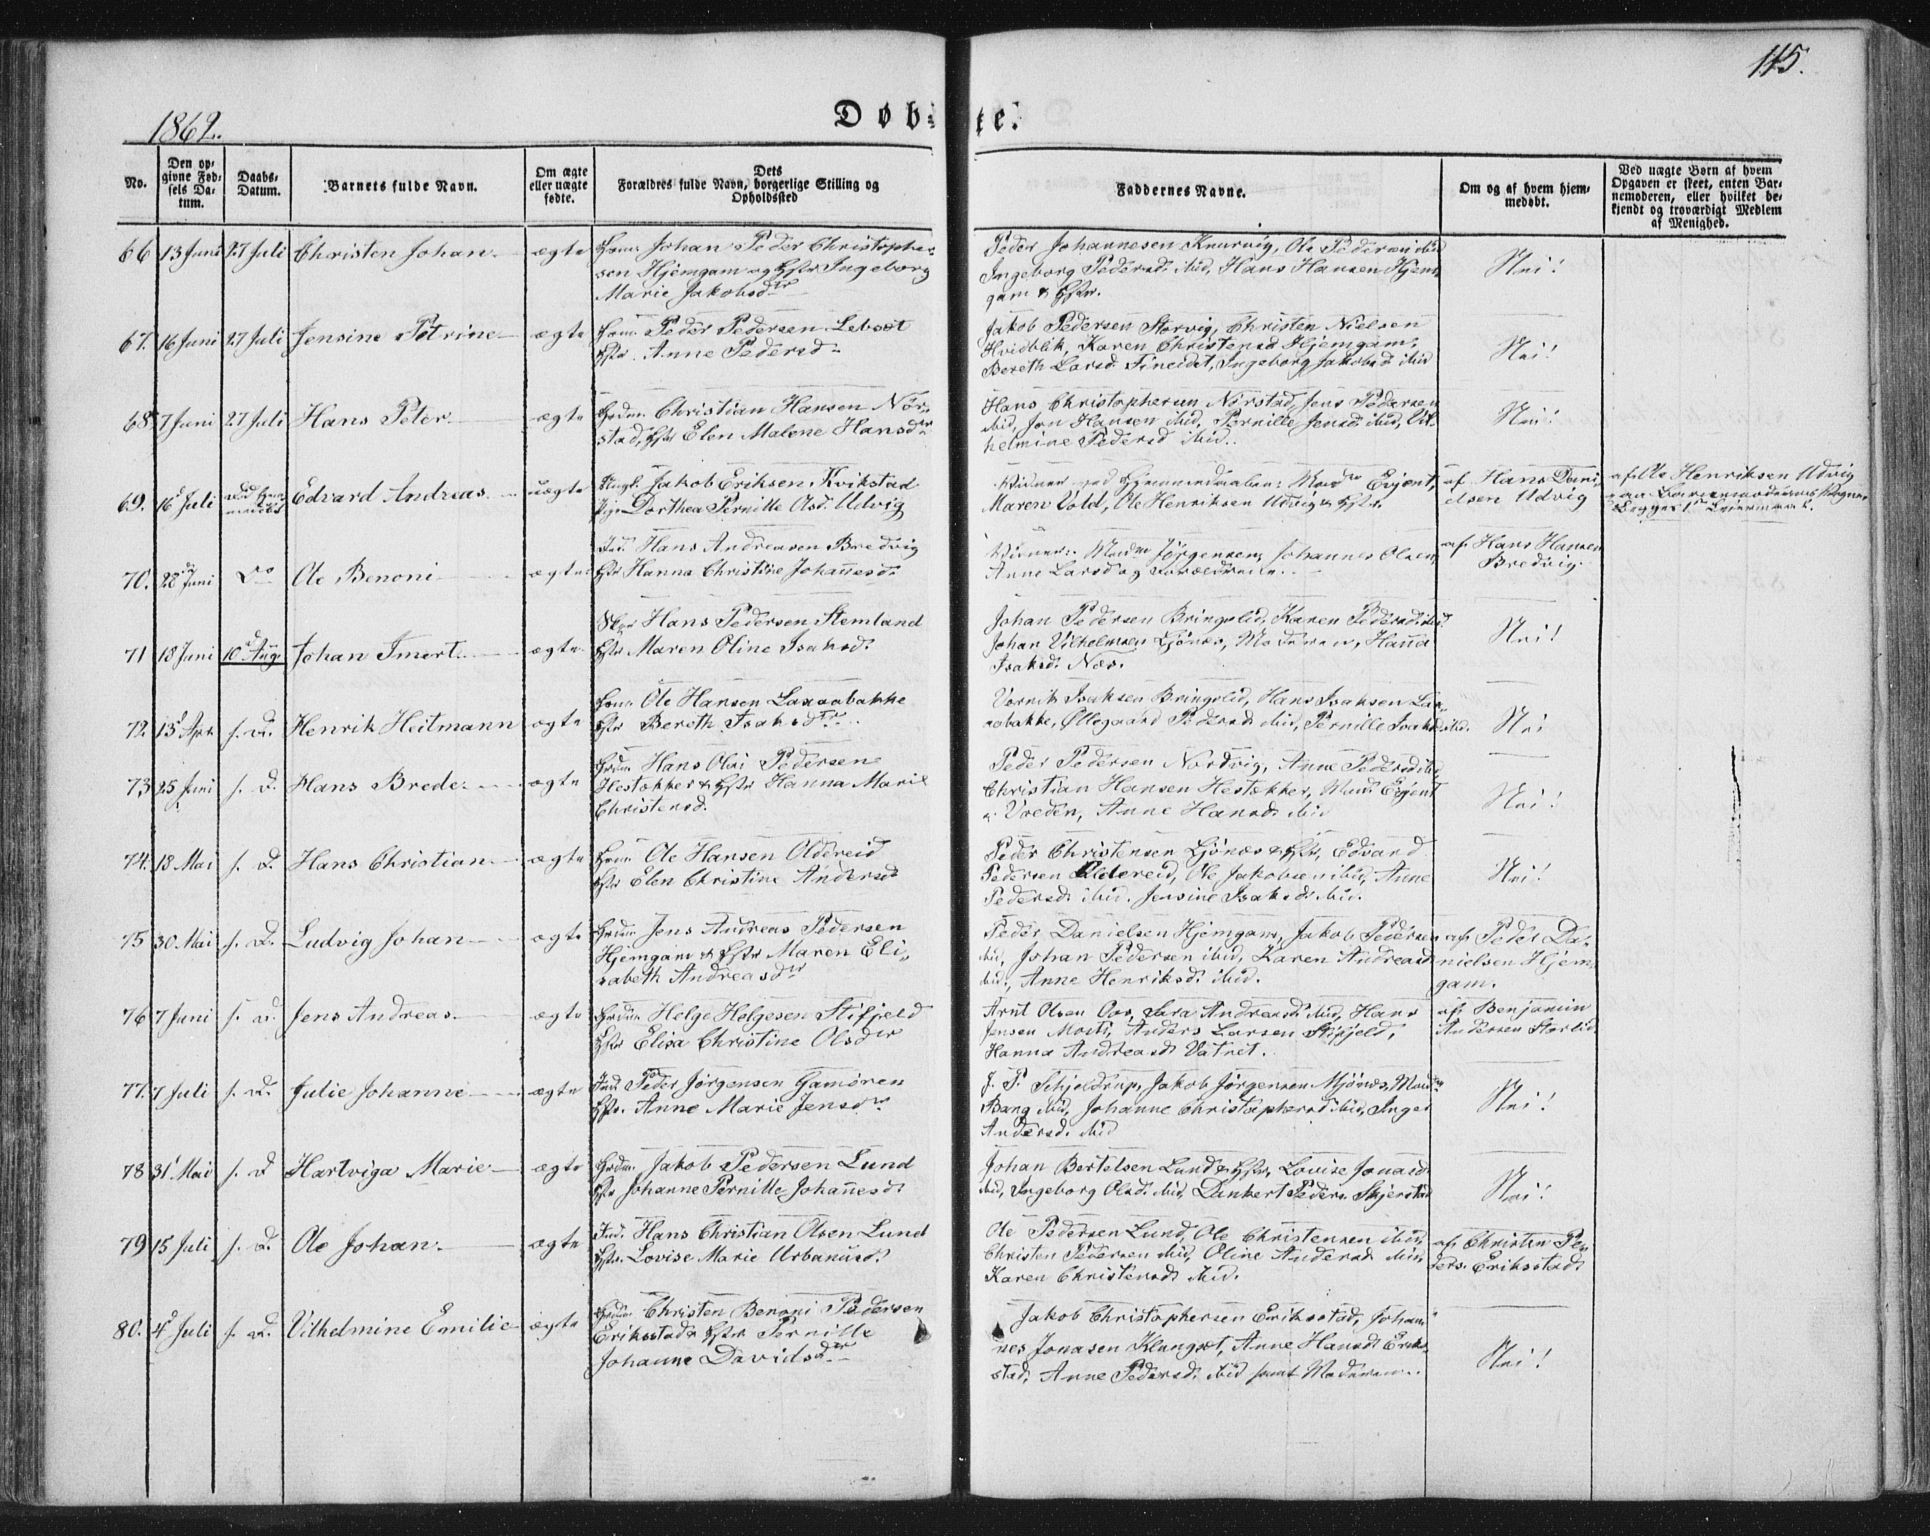 115.
1862.
Døbte.
No.
Den opgivne Fødsels Datum.
Daabs-Datum.
Barnets fulde Navn.
Om ægte eller uægte fødte.
Dets Forældres fulde Navn, borgerlige Stilling og Opholdssted
Faddernes Navne.
Om og af hvem hjemmedøbt.
Ved uægte Børn af hvem Opgaven er skeet, enten Barnemoderen, eller hvilket bekjendt og troværdigt Medlem af Menighed.
66 13 Juni 27 Juli Christen Johan ægte
Johan Peder Christophersen Hjemgam og Hstr Ingeborg
Marie Jakobsdtr
Peder Johannesen Knurvig, Ole Pedersen ibid
Ingeborg Pedersd. ibid, Hans Hansen Hjemgam & Hstr.
Nei!
67. 16 Juni 27 Juli Jensine Petrine ægte
Peder Pedersen Lebsøt
Hstr. Anne Pedersd.
Jakob Pedersen Storvig, Christen Nielsen
Hvidblik, Karen Christensd Hjemgam,
Bereth Larsd. Fineidet, Ingeborg Jakobsd ibid
Nei!
68 7 Juni 27 Juli Hans Peter ægte
Christian Hansen Nørstad, Hstr Elen Malene Hansdtr
Hans Christophersen Nørstad, Jens Pedersen
ibid, Jon Hansen ibid, Pernille Jensd. ibid, Vilhelmine Pedersd ibid.
Nei!
69. 16 Juli Edvard Andreas uægte
Ungk. Jakob Eriksen Kvikstad
Pige Dorthea Pernille Olsd. Udvig
Maren Vold, Ole Henriksen Udvig & Hstr.
af Hans Danielsen Udvig
af Ole Henriksen Udvig
70. 22 Juni Do Ole Benoni ægte
Ind. Hans Andreasen Bredvig
Hstr Hanna Christine Johañesd.
Vidner: Mad. Jørgensen, Johannes Olsen,
Anne Larsd og Forældrene.
af Hans Hansen
Bredvig
71 18 Juni 10 Aug. Johan Imert ægte
Hans Pedersen Stemland
Hstr Maren Oline Isaksd.
Johan Pedersen Bringslid, Karen Pedersd ibid
Johan Vilhelmsen Ljønes, Moderen, Hanna
Isaksd. Næs.
Nei!
72. 13 Apr. s. D. Henrik Heitmann ægte
Ole Hansen Laxaabakke
Hstr Bereth Isaksdtr
Isaksen Bringslid, Hans Isaksen Laxaabakke, Ollegaard Pedersd ibid, Pernille Isaksd ibid.
Nei
73 25 Juni s. D. Hans Brede ægte
Hans Olai Pedersen
Hestækker & Hstr Hanna Marie
Christensd.
Peder Pedersen Nordvig, Anne Pedersd ibid
Christian Hansen Hestækker, Mad. Eegent
Anne Hansd ibid
Nei!
74. 18 Mai s. D. Hans Christian ægte
Ole Hansen Oldereid
Hstr Elen Christine Andersd
Peder Christensen Ljønes & Hstr, Edvard
Pedersen Oldereid, Ole Jakobsen ibid, Anne
Pedersd. ibid. Jensine Isaksd. ibid.
Nei!
75 30 Mai s. D. Ludvig Johan ægte
Jens Andreas Pedersen
Hjemgam & Hstr Maren Elisabeth Andreasdtr
Peder Danielsen Hjemgam, Jakob Pedersen
ibid, Johan Pedersen ibid, Karen Andreasd
ibid, Anne Henriksd. ibid.
af Peder Danielsen Hjemgam.
76 7 Juni s. D. Jens Andreas ægte
Helge Helgesen Stifjeld
Hstr Elisa Christine Olsdtr
Arnt Olsen Oos, Sara Andreasd. ibid, Hans
Jensen Mosti, Anders Larsen Stifjeld,
Hanna Andreasd Vatnet.
af Benjamin
Andersen Storlid
77. 7 Juli s. D. Julie Johanne ægte
Ind. Peder Jørgensen Gamøren
Hstr. Anne Marie Jensdtr
J. P. Schjeldrup, Jakob Jørgensen Mjønes, Mad.
Bang ibid, Johanne Christophersd ibid, Inger
Andersd. ibid
Nei!
78 31 Mai s. D Hartviga Marie ægte
Jakob Pedersen Lund
Hstr Johanne Pernille Johañesd.
Johan Bertelsen Lund & Hstr, Lovise Jonasd.
ibid, Ingeborg Olsd. ibid, Dankert Peders. Skjerstad
Nei!
79 15 Juli s. D. Ole Johan ægte
Ind. Hans Christian Olsen Lund
Hstr. Lovise Marie Urbanusd.
Ole Pedersen Lund, Ole Christensen ibid,
Christen Pedersen ibid, Oline Andersd ibid,
Karen Christensd. ibid.
af Christen Peders. Eriksstad
80. 4 Juli s. D. Vilhelmine Emilie ægte
Christen Benoni Pedersen
Eriksstad & Hstr Pernille
Johanne Davidsdtr
Jakob Christophersen Eriksstad, Johannes Jonasen Klungset, Anne Hansd Eriksstad, Anne Pedersd. ibid samt Moderen.
Nei!